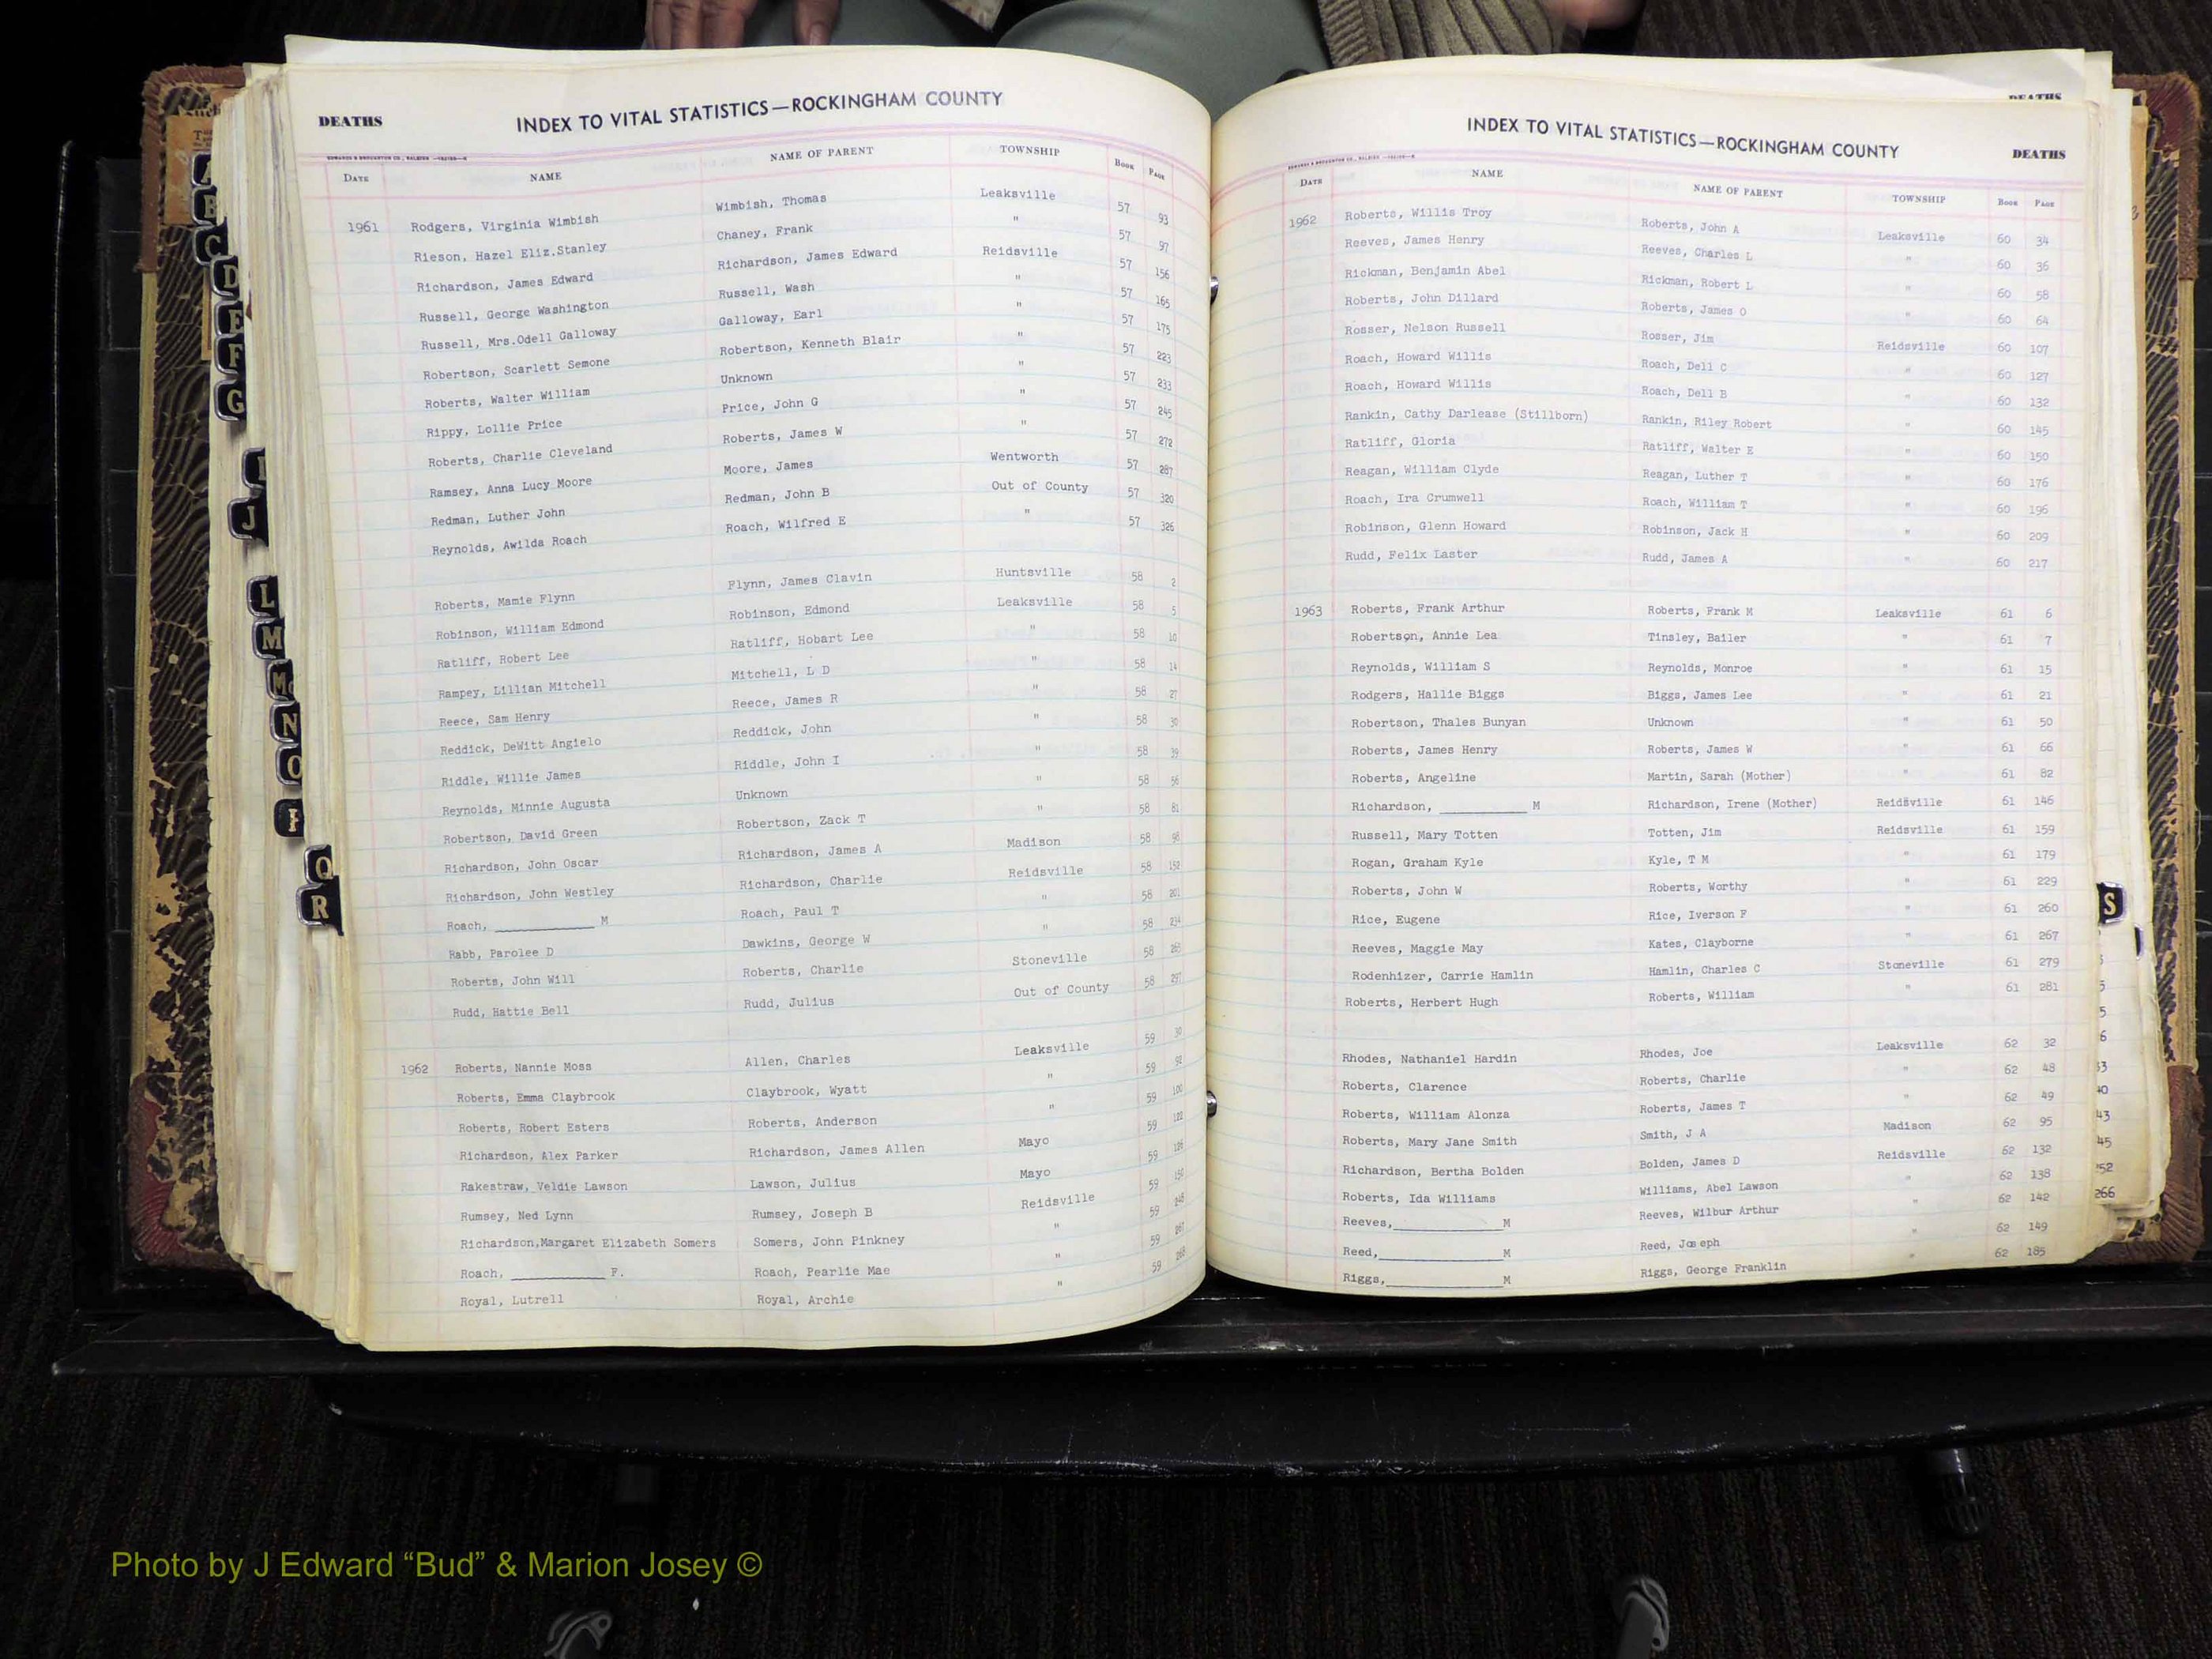 DEATHS
INDEX TO VITAL STATISTICS—ROCKINGHAM COUNTY
DATE NAME NAME OF PARENT TOWNSHIP BOOK PAGE
1961 Rodgers, Virginia Wimbish Wimbish, Thomas Leaksville 57 93
Rieson, Hazel Eliz.Stanley Chaney, Frank " 57 97
Richardson, James Edward Richardson, James Edward Reidsville 57 156
Russell, George Washington Russell, Wash " 57 165
Russell, Mrs.Odell Galloway Galloway, Earl " 57 175
Robertson, Scarlett Semone Robertson, Kenneth Blair " 57 223
Roberts, Walter William Unknown " 57 233
Rippy, Lollie Price Price, John G " 57 245
Roberts, Charlie Cleveland Roberts, James W " 57 272
Ramsey, Anna Lucy Moore Moore, James Wentworth 57 287
Redman, Luther John Redman, John B Out of County 57 320
Reynolds, Awilda Roach Roach, Wilfred E " 57 326
Roberts, Mamie Flynn Flynn, James Clavin Huntsville 58 2
Robinson, William Edmond Robinson, Edmond Leaksville 58 5
Ratliff, Robert Lee Ratliff, Hobart Lee " 58 10
Rampey, Lillian Mitchell Mitchell, L D " 58 14
Reece, Sam Henry Reece, James R " 58 27
Reddick, DeWitt Angielo Reddick, John " 58 30
Riddle, Willie James Riddle, John I " 58 39
Reynolds, Minnie Augusta Unknown " 58 56
Robertson, David Green Robertson, Zack T " 58 81
Richardson, John Oscar Richardson, James A Madison 58 98
Richardson, John Westley Richardson, Charlie Reidsville 58 152
Roach, ____________ M Roach, Paul T " 58 201
Rabb, Parolee D Dawkins, George W " 58 234
Roberts, John Will Roberts, Charlie Stoneville 58
Rudd, Hattie Bell Rudd, Julius Out of County 58 297
1962 Roberts, Nannie Moss Allen, Charles Leaksville 59 30
Roberts, Emma Claybrook Claybrook, Wyatt " 59 92
Roberts, Robert Esters Roberts, Anderson " 59 100
Richardson, Alex Parker Richardson, James Allen Mayo 59 122
Rakestraw, Veldie Lawson Lawson, Julius Mayo 59 126
Rumsey, Ned Lynn Rumsey, Joseph B Reidsville 59
Richardson,Margaret Elizabeth Somers Somers, John Pinkney " 59
Roach, ____________ F. Roach, Pearlie Mae " 59
Royal, Lutrell Royal, Archie " 59
DEATHS
INDEX TO VITAL STATISTICS—ROCKINGHAM COUNTY
DEATHS
DATE NAME NAME OF PARENT TOWNSHIP BOOK PAGE
1962 Roberts, Willis Troy Roberts, John A Leaksville 60 34
Reeves, James Henry Reeves, Charles L " 60 36
Rickman, Benjamin Abel Rickman, Robert L " 60 58
Roberts, John Dillard Roberts, James O " 60 64
Rosser, Nelson Russell Rosser, Jim Reidsville 60 107
Roach, Howard Willis Roach, Dell C " 60 127
Roach, Howard Willis Roach, Dell B " 60 132
Rankin, Cathy Darlease (Stillborn) Rankin, Riley Robert " 60 145
Ratliff, Gloria Ratliff, Walter E " 60 150
Reagan, William Clyde Reagan, Luther T " 60 176
Roach, Ira Crumwell Roach, William T " 60 196
Robinson, Glenn Howard Robinson, Jack H " 60 209
Rudd, Felix Laster Rudd, James A " 60 217
1963 Roberts, Frank Arthur Roberts, Frank M Leaksville 61 6
Robertson, Annie Lea Tinsley, Bailer " 61 7
Reynolds, William S Reynolds, Monroe " 61 15
Rodgers, Hallie Biggs Biggs, James Lee " 61 21
Robertson, Thales Bunyan Unknown " 61 50
Roberts, James Henry Roberts, James W " 61 66
Roberts, Angeline Martin, Sarah (Mother) " 61 82
Richardson, ____________ M Richardson, Irene (Mother) Reidsville 61 146
Russell, Mary Totten Totten, Jim Reidsville 61 159
Rogan, Graham Kyle Kyle, T M " 61 179
Roberts, John W Roberts, Worthy " 61 229
Rice, Eugene Rice, Iverson F " 61 260
Reeves, Maggie May Kates, Clayborne " 61 267
Rodenhizer, Carrie Hamlin Hamlin, Charles C Stoneville 61 279
Roberts, Herbert Hugh Roberts, William " 61 281
Rhodes, Nathaniel Hardin Rhodes, Joe Leaksville 62 32
Roberts, Clarence Roberts, Charlie " 62 48
Roberts, William Alonza Roberts, James T " 62 49
Roberts, Mary Jane Smith Smith, J A Madison 62 95
Richardson, Bertha Bolden Bolden, James D Reidsville 62 132
Roberts, Ida Williams Williams, Abel Lawson " 62 138
Reeves,____________M Reeves, Wilbur Arthur " 62 142
Reed,____________M Reed, Joseph " 62 149
Riggs,____________M Riggs, George Franklin " 62 185
A
B
C
D
E
F
G
I
J
L
M
N
O
Q
R
S
5
5
6
33
40
43
45
52
266
Photo by J Edward “Bud” & Marion Josey ©